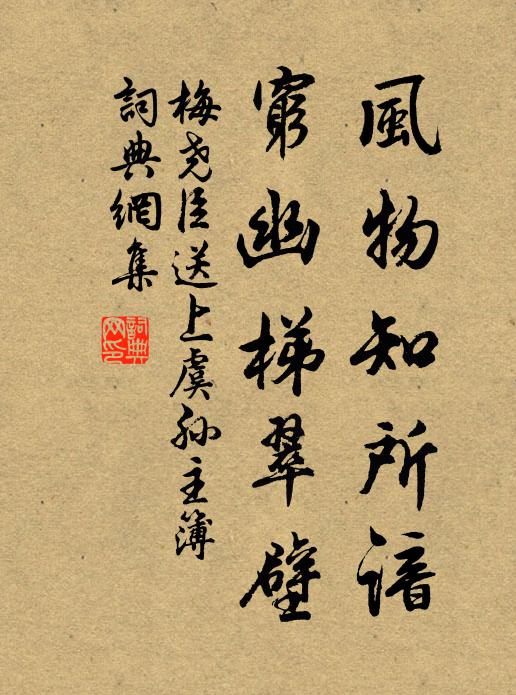 風物知所諳
窮幽梯翠壁
梅尧臣送上虞孙主簿
詞典網集
詞典網印